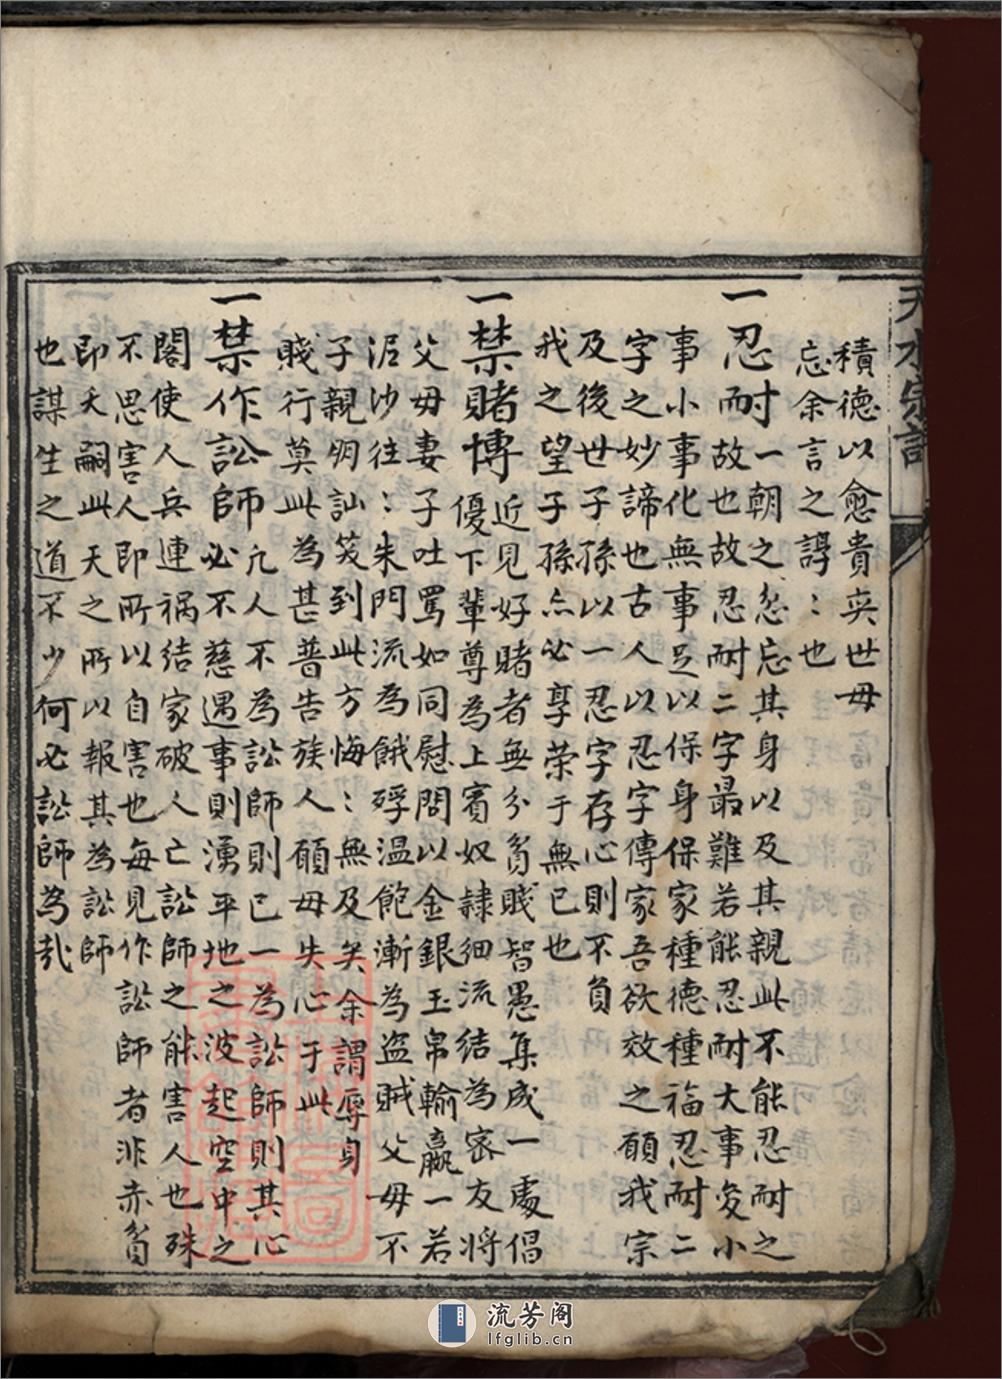 天水宗
積德以愈貴奕世毋
忘余言之諤：也
一忍耐一朝之忿忘其身以及其親此不能忍耐之
故也故忍耐二字最難若能忍耐大事变小
事小事化無事足以保身保家種德種福忍耐二
字之妙諦也古人以忍字傳家吾欲效之願我宗
及後世子孫以一忍字存心則不負
我之望子孫亦必享荣于無已也
一禁賭博近見好賭者無分貧賤智愚集成一處倡
優下輩尊為上賓奴隸細流結為密友將
父毋妻子吐罵如同慰問以金銀玉帛輸贏一若
泥沙往：朱門流為餓殍温飽漸為盗賊父毋不
子親朋訕笑到此方悔：無及矣余謂辱身
賤行莫此為甚普告族人願毋失心于此
一禁作訟師凢人不為訟師則已一為訟師則其心
必不慈遇事則湧平地之波起空中之
閣使人兵連禍结家破人亡訟師之能害人也殊
不思害人即所以自害也每見作訟師者非赤貧
即夭嗣此天之所以報其為訟師
也謀生之道不少何必訟師為哉
流芳阁
lfglib.cn